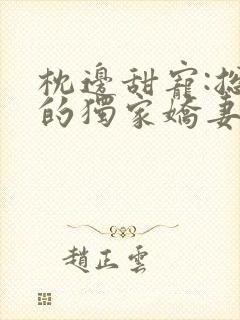 枕邊甜寵:總
的獨家嬌妻
趙正雲